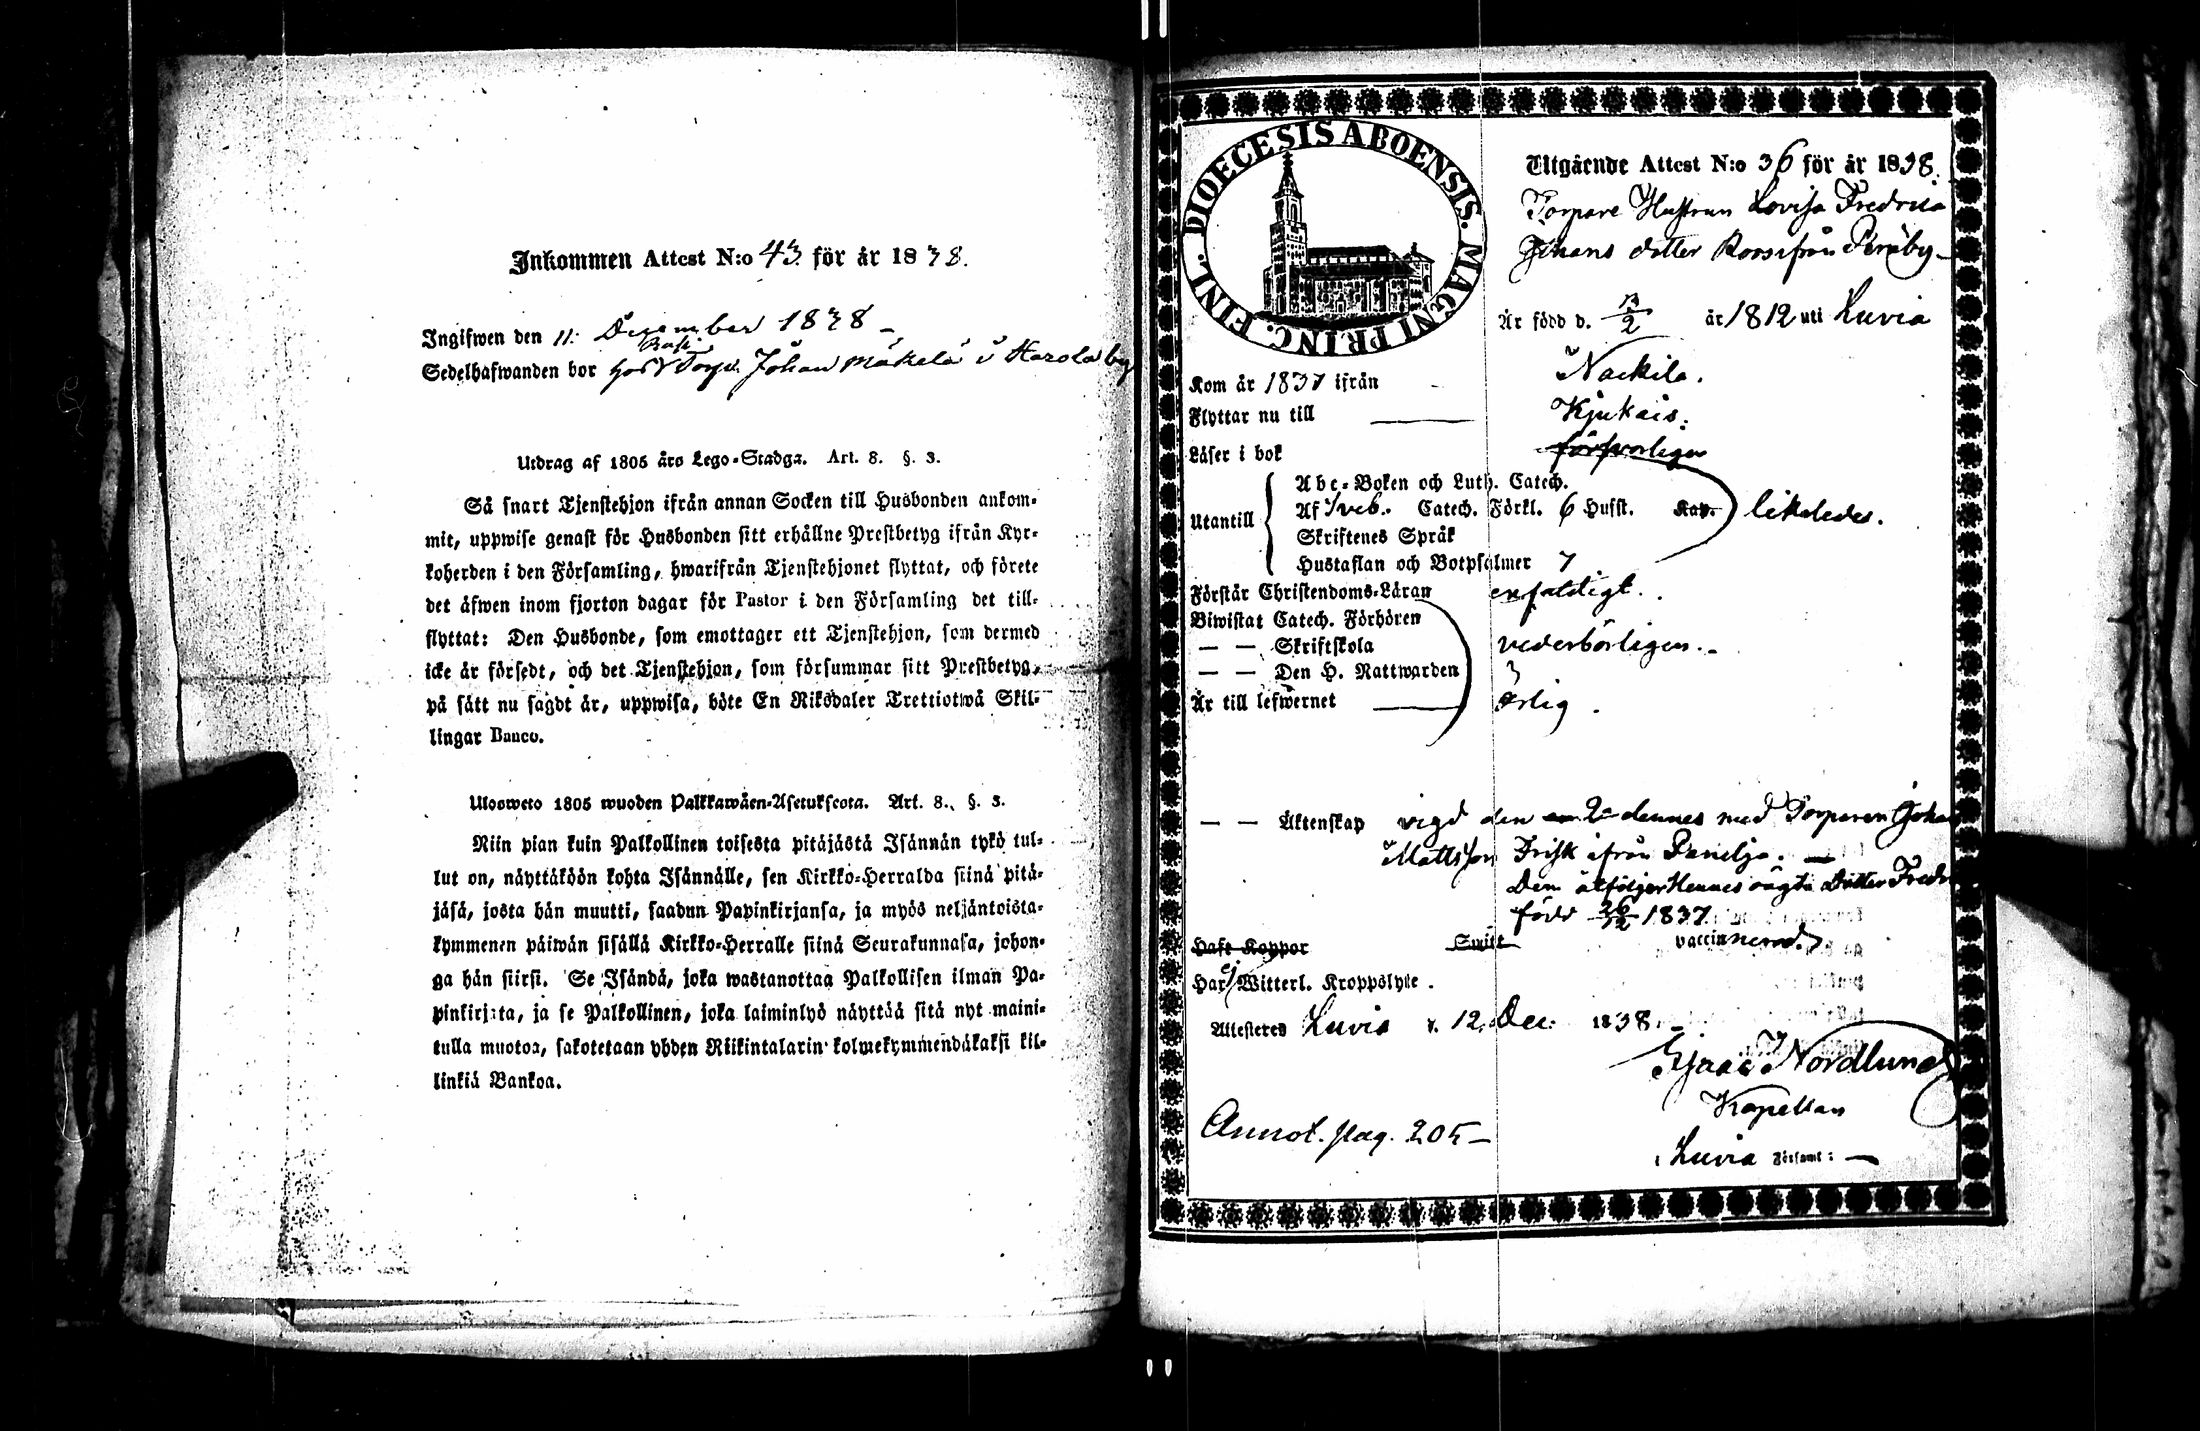 Inkommen Attest N:o 43 för år 1838.
Ingifwen den 11. December 1838 –
Sedelhafwanden bor hos Torp. Johan Mäkelä i Harola by
Utdrag af 1805 års Lego-Stadga. Art. 8. §. 3.
Så snart Tjenstehjon ifrån annan Socken till Husbonden ankom-
mit, uppwise genast för Husbonden sitt erhållne Prestbetyg ifrån Kyr-
koherden i den Församling, hwarifrån Tjenstehjonet flyttat, och förete
det äfwen inom fjorton dagar för Pastor i den Församling det till-
flyttat: Den Husbonde, som emottager ett Tjenstehjon, som dermed
icke är försedt, och det Tjenstehjon, som försummar sitt Prestbetyg,
på sätt nu sagdt är, uppwisa, böte En Riksdaler Trettiotwå Skil-
lingar Banco.
Ulosweto 1805 wuoden Palkkawäen-Asetuksesta. Art. 8., §. 3.
Niin pian kuin Palkollinen toisesta pitäjästä Isännän tykö tul-
lut on, näyttäköön kohta Isännälle, sen Kirkko-Herralda siinä pitä-
jäsä, josta hän muutti, saadun Papinkirjansa, ja myös neljäntoista-
kymmenen päiwän sisällä Kirkko-Herralle siinä Seurakunnasa, johon-
ga hän siirsi. Se Isändä, joka wastanottaa Palkollisen ilman Pa-
pinkirjata, ja se Palkollinen, joka laiminlyö näyttää sitä nyt maini-
tulla muotoa, sakotetaan yhden Riikintalarin kolmekymmendäkaksi kil-
linkiä Bankoa.
DIOECESIS ABOENSIS. MAGNI PRINC. FINL.
Utgående Attest N:o 36 för år 1838.
Torpare Hustrun Lovisa Fredrica
Johans dotter Roos ifrån Peräby –
Är född d. /2 år 1812 uti Luvia
Kom år 1837 ifrån Nackila.
Flyttar nu till Kjukais.
Läser i bok försvarligen
Utantill
Abc-Boken och Luth. Catech.
Af Sveb. Catech. Förkl. 6 Hufst. Kap. likaledes.
Skriftenes Språk
Hustaflan och Botpsalmer 7
Förstår Christendoms-Läran enfaldigt.
Biwistat Catech. Förhören
— — Skriftskola vederbörligen. –
— — Den H. Nattwarden
Är till lefwernet ärlig.
— — Äktenskap vigd den 2 dennes med Torparen Johan
Mattsson Frisk ifrån Panelja. —
Dem åtföljer Hennes oägta Dotter Fredr
född 26/12 1837.
Haft Koppor Smitt vaccinerad.
Har ej Witterl. Kroppslyte.
Attesteras Luvia d. 12. Dec. 1838.
Isaac Nordlund
Kapellan
Annot. pag. 205 –
i Luvia Församl: —